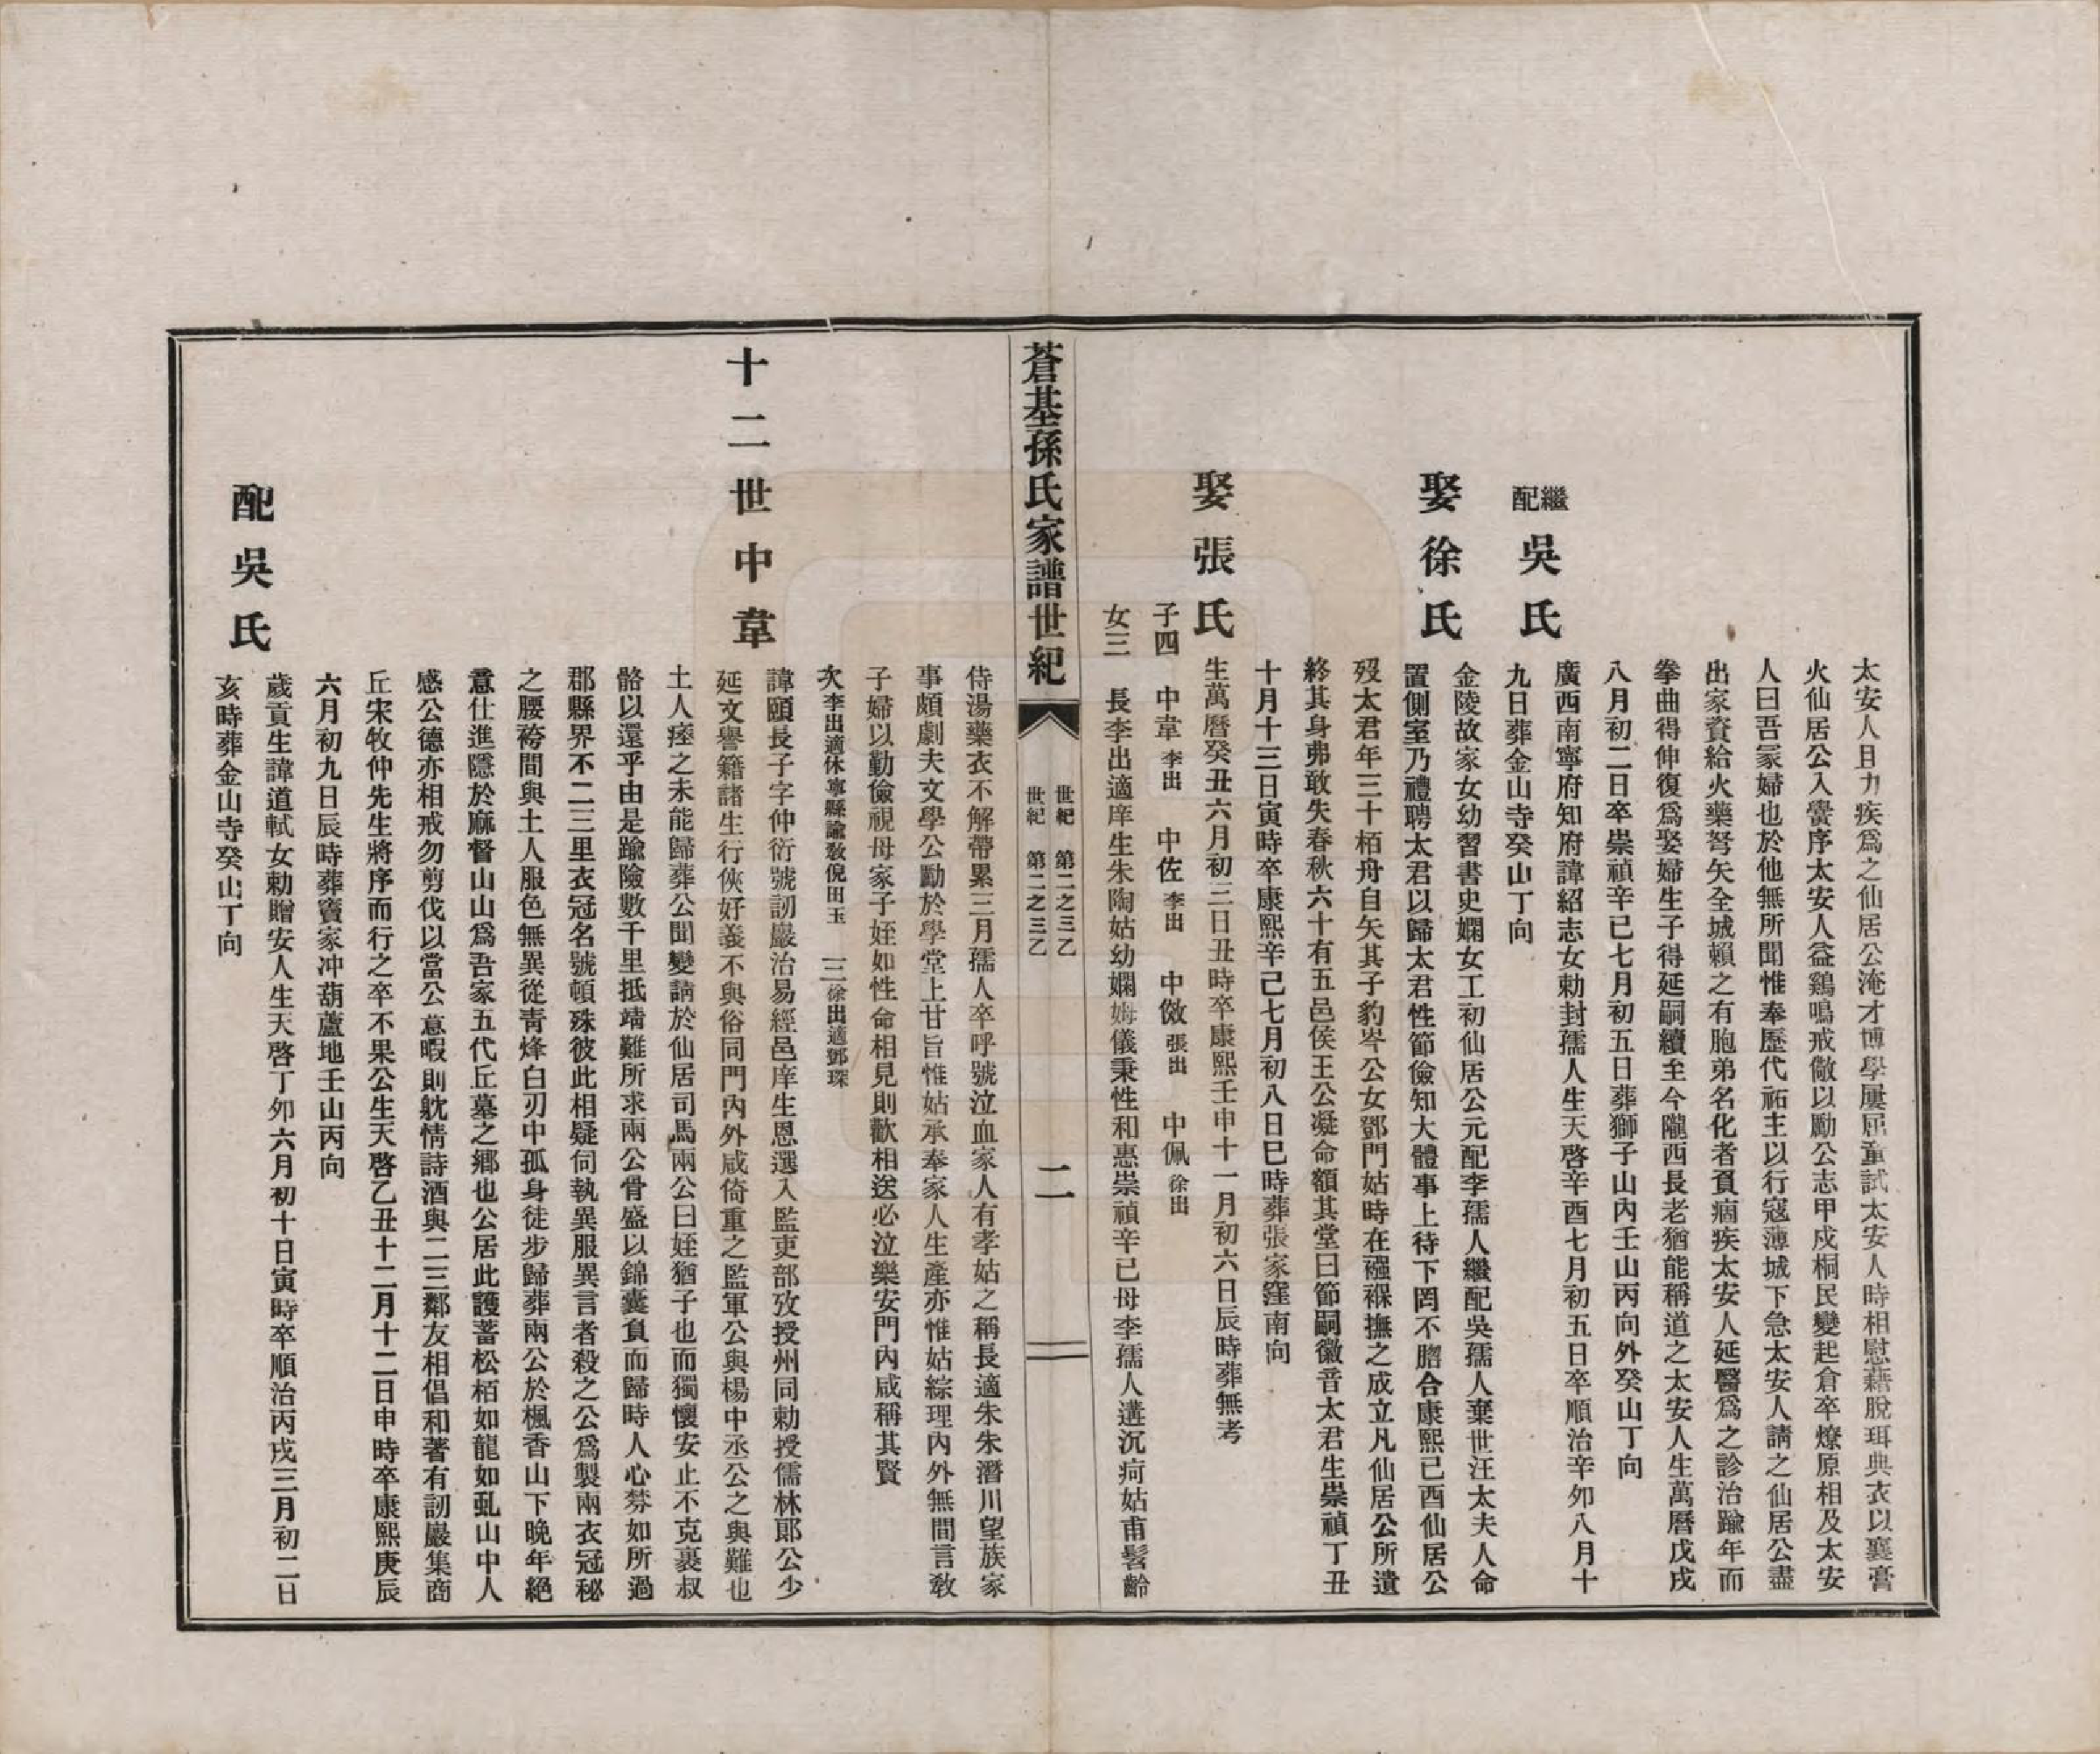 太安人日力疾爲之仙居公淹才博學屢屈童試太安人時相慰藉脫珥典衣以襄膏
火仙居公入黌序太安人益鷄鳴戒儆以勵公志甲戍桐民變起倉卒燎原相及太安
人曰吾冢婦也於他無所聞惟奉歷代祏主以行寇薄城下急太安人請之仙居公盡
出家資給火藥弩矢全城賴之有胞弟名化者負痼疾太安人延醫爲之診治踰年而
拳曲得伸復爲娶婦生子得延嗣續至今隴西長老猶能稱道之太安人生萬曆戊戌
八月初二日卒崇禎辛已七月初五日葬獅子山內壬山丙向外癸山丁向
繼配吳氏
廣西南寧府知府諱紹志女勅封孺人生天啓辛酉七月初五日卒順治辛夘八月十
九日葬金山寺癸山丁向
娶徐氏
金陵故家女幼習書史嫻女工初仙居公元配李孺人繼配吳孺人棄世汪太夫人命
置側室乃禮聘太君以歸太君性節儉知大體事上待下罔不䐇合康熙己酉仙居公
歿太君年三十栢舟自矢其子豹岑公女鄧門姑時在襁褓撫之成立凡仙居公所遺
終其身弗敢失春秋六十有五邑侯王公凝命額其堂曰節嗣徽音太君生崇禎丁丑
十月十三日寅時卒康熙辛己七月初八日巳時葬張家窪南向
娶張氏
生萬曆癸丑六月初三日丑時卒康熙壬申十一月初六日辰時葬無考
子四 中韋李出 中佐李出 中儆張出 中佩徐出
女三 長李出適庠生朱陶姑幼嫻姆儀秉性和惠崇禎辛已母李孺人遘沉疴姑甫髫齡
蒼基孫氏家譜世紀
世紀 第二之三乙
世紀 第二之三乙
二
侍湯藥衣不解帶累三月孺人卒呼號泣血家人有孝姑之稱長適朱朱潛川望族家
事頗劇夫文學公勵於學堂上甘旨惟姑承奉家人生產亦惟姑綜理內外無間言敎
子婦以勤儉視母家子姪如性命相見則歡相送必泣樂安門內咸稱其賢
次李出適休寧縣諭敎倪田玉 三徐出適鄧琛
十二世中韋
諱頤長子字仲衍號訒巖治易經邑庠生恩選入監吏部攷授州同勅授儒林郞公少
延文譽籍諸生行俠好義不與俗同門內外咸倚重之監軍公與楊中丞公之與難也
土人瘞之未能歸葬公聞變請於仙居司馬兩公曰姪猶子也而獨懷安止不克裹叔
骼以還乎由是踰險數千里抵靖難所求兩公骨盛以錦囊負而歸時人心棼如所過
郡縣界不二三里衣冠名號頓殊彼此相疑伺執異服異言者殺之公爲製兩衣冠秘
之腰袴間與土人服色無異從靑烽白刃中孤身徒步歸葬兩公於楓香山下晚年絕
意仕進隱於麻督山山爲吾家五代丘墓之鄉也公居此護蓄松栢如龍如虬山中人
感公德亦相戒勿剪伐以當公意暇則躭情詩酒與二三鄰友相倡和著有訒巖集商
丘宋牧仲先生將序而行之卒不果公生天啓乙丑十二月十二日申時卒康熙庚辰
六月初九日辰時葬竇家冲葫蘆地壬山丙向
配吳氏
歲貢生諱道軾女勅贈安人生天啓丁夘六月初十日寅時卒順治丙戌三月初二日
亥時葬金山寺癸山丁向